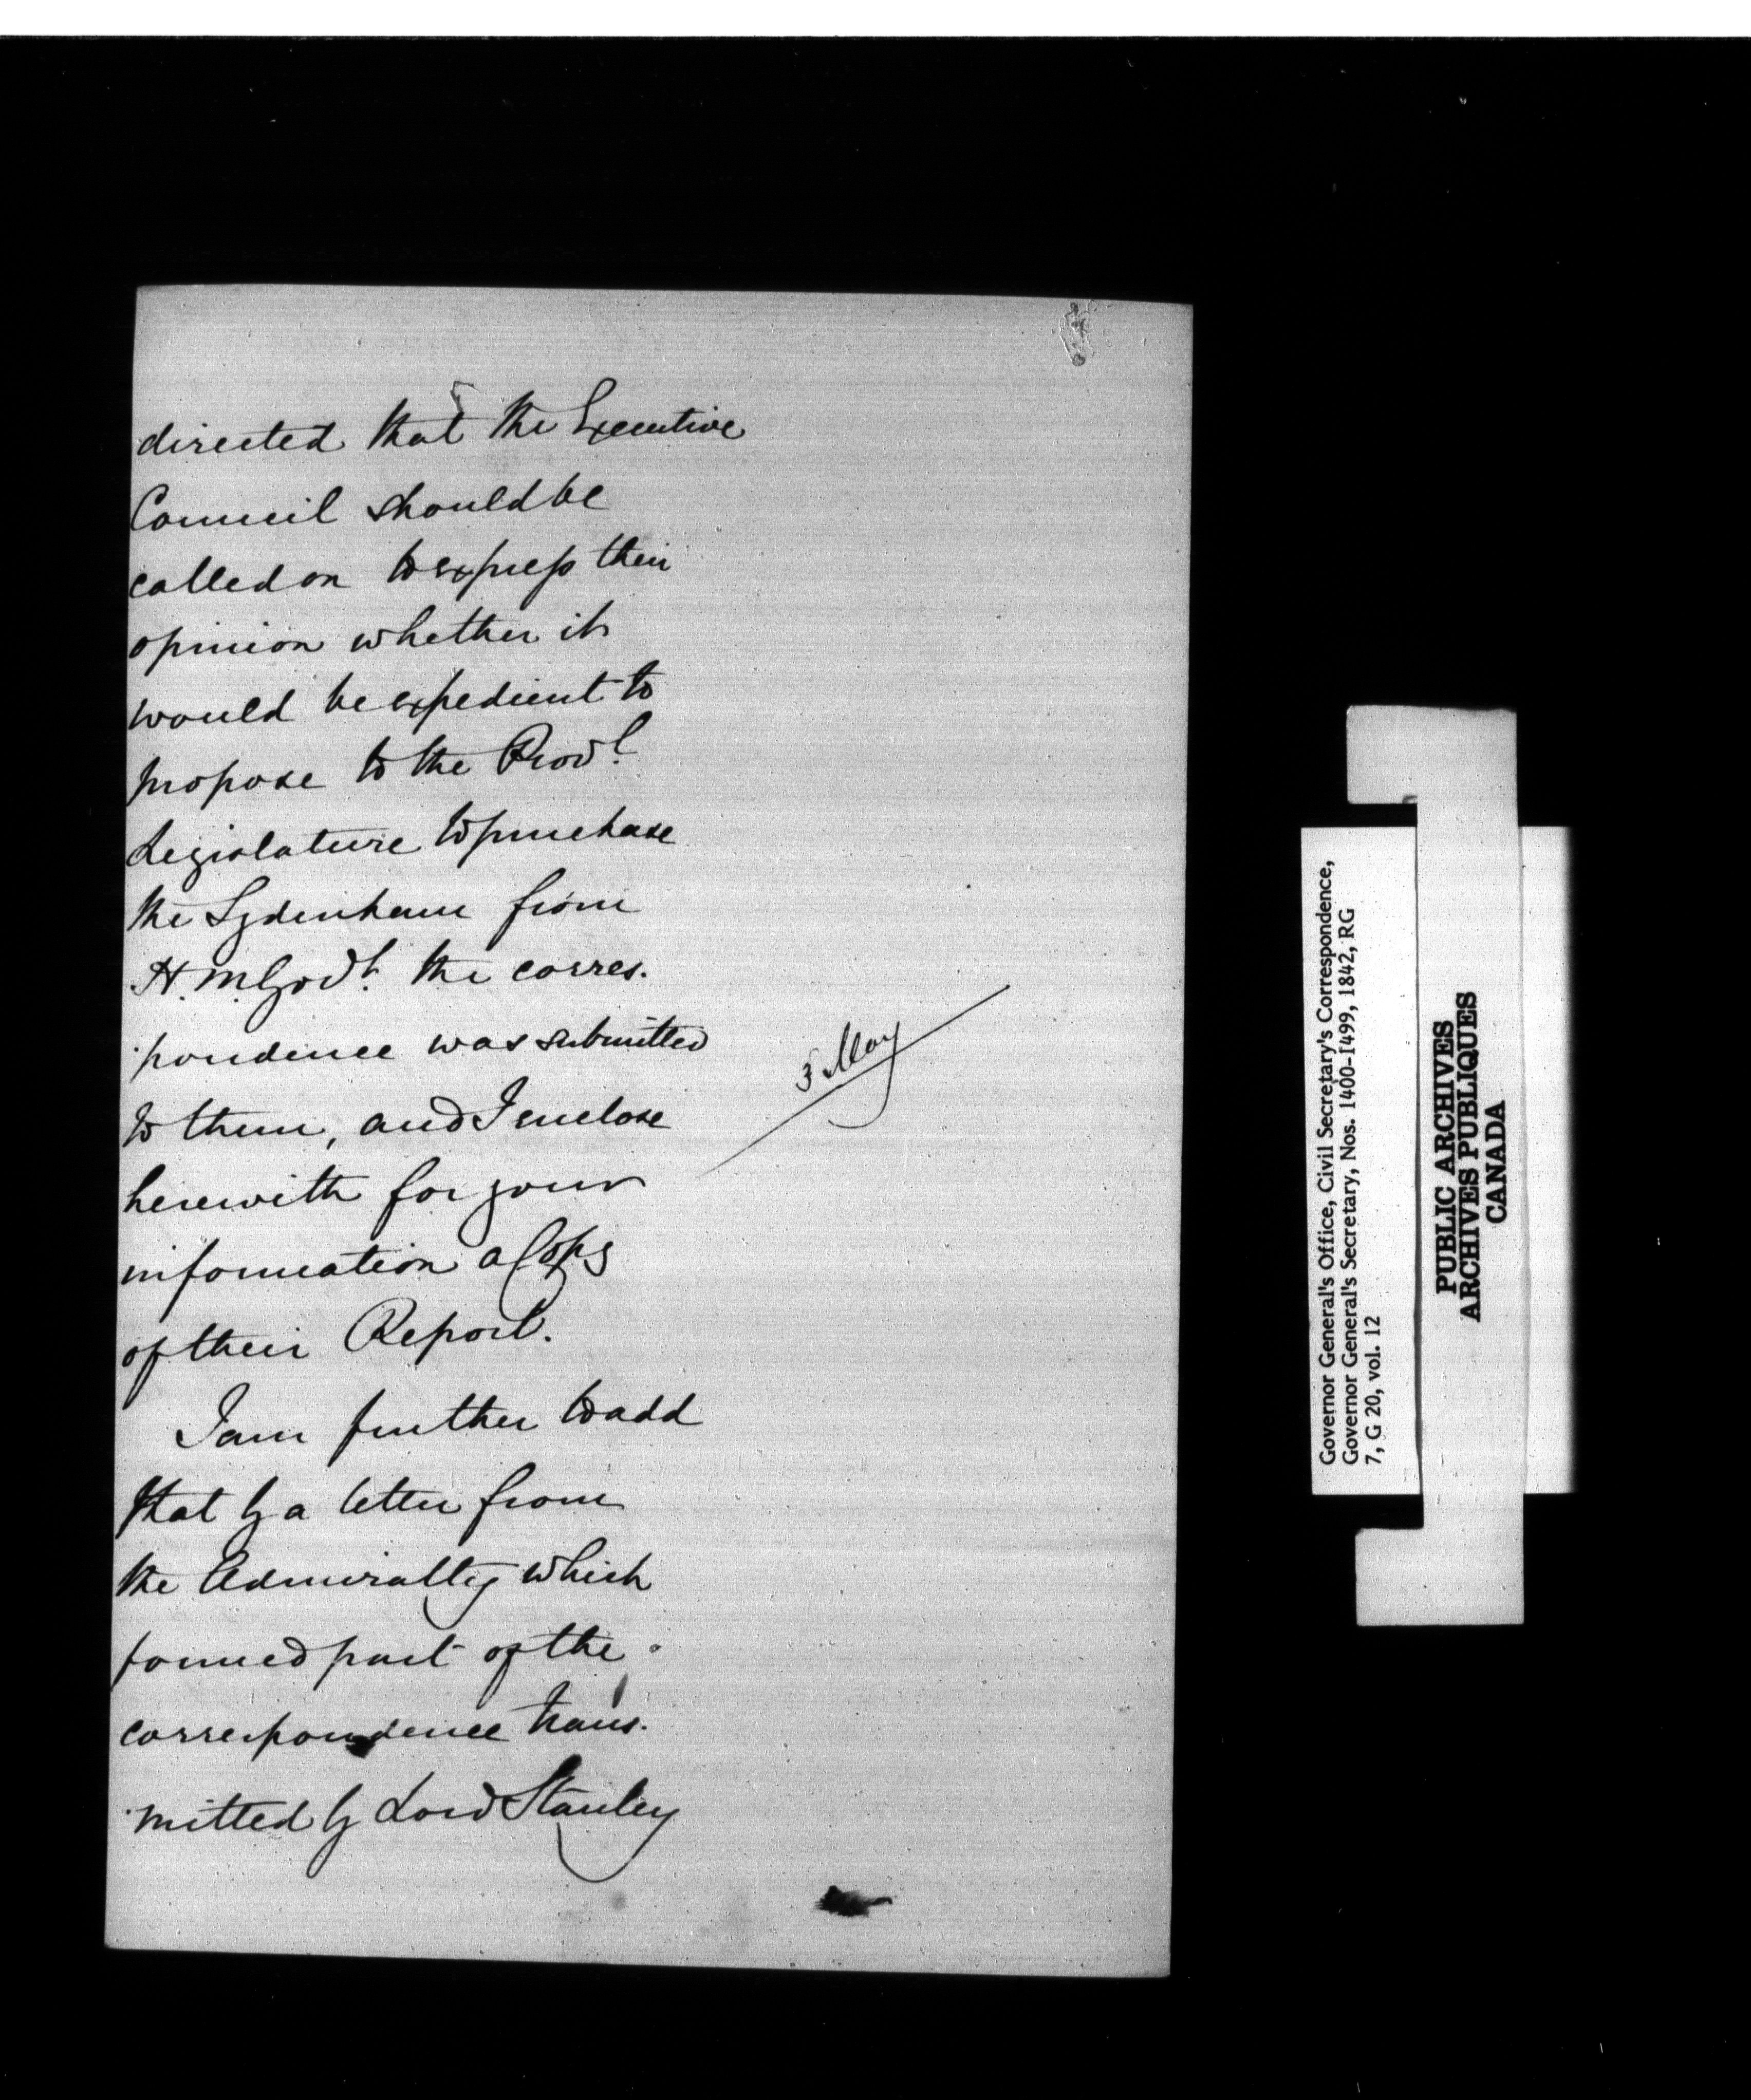 directed that the Executive
Council should be
called on to express their
opinion whether it
would be expedient to
propose to the Provl.
Legislature to purchase
the Sydenham from
H. M. Govt. the corres.
pondence was submitted
to them, and I enclose
herewith for your
information a Copy
of their Report.
I am further to add
that by a letter from
the Admiralty which
formed part of the
correspondence trans.
mitted by Lord Stanley
3 May
Governor General's Office, Civil Secretary's Correspondence,
Governor General's Secretary, Nos. 1400-1499, 1842, RG
7, G 20, vol. 12
PUBLIC ARCHIVES
ARCHIVES PUBLIQUES
CANADA